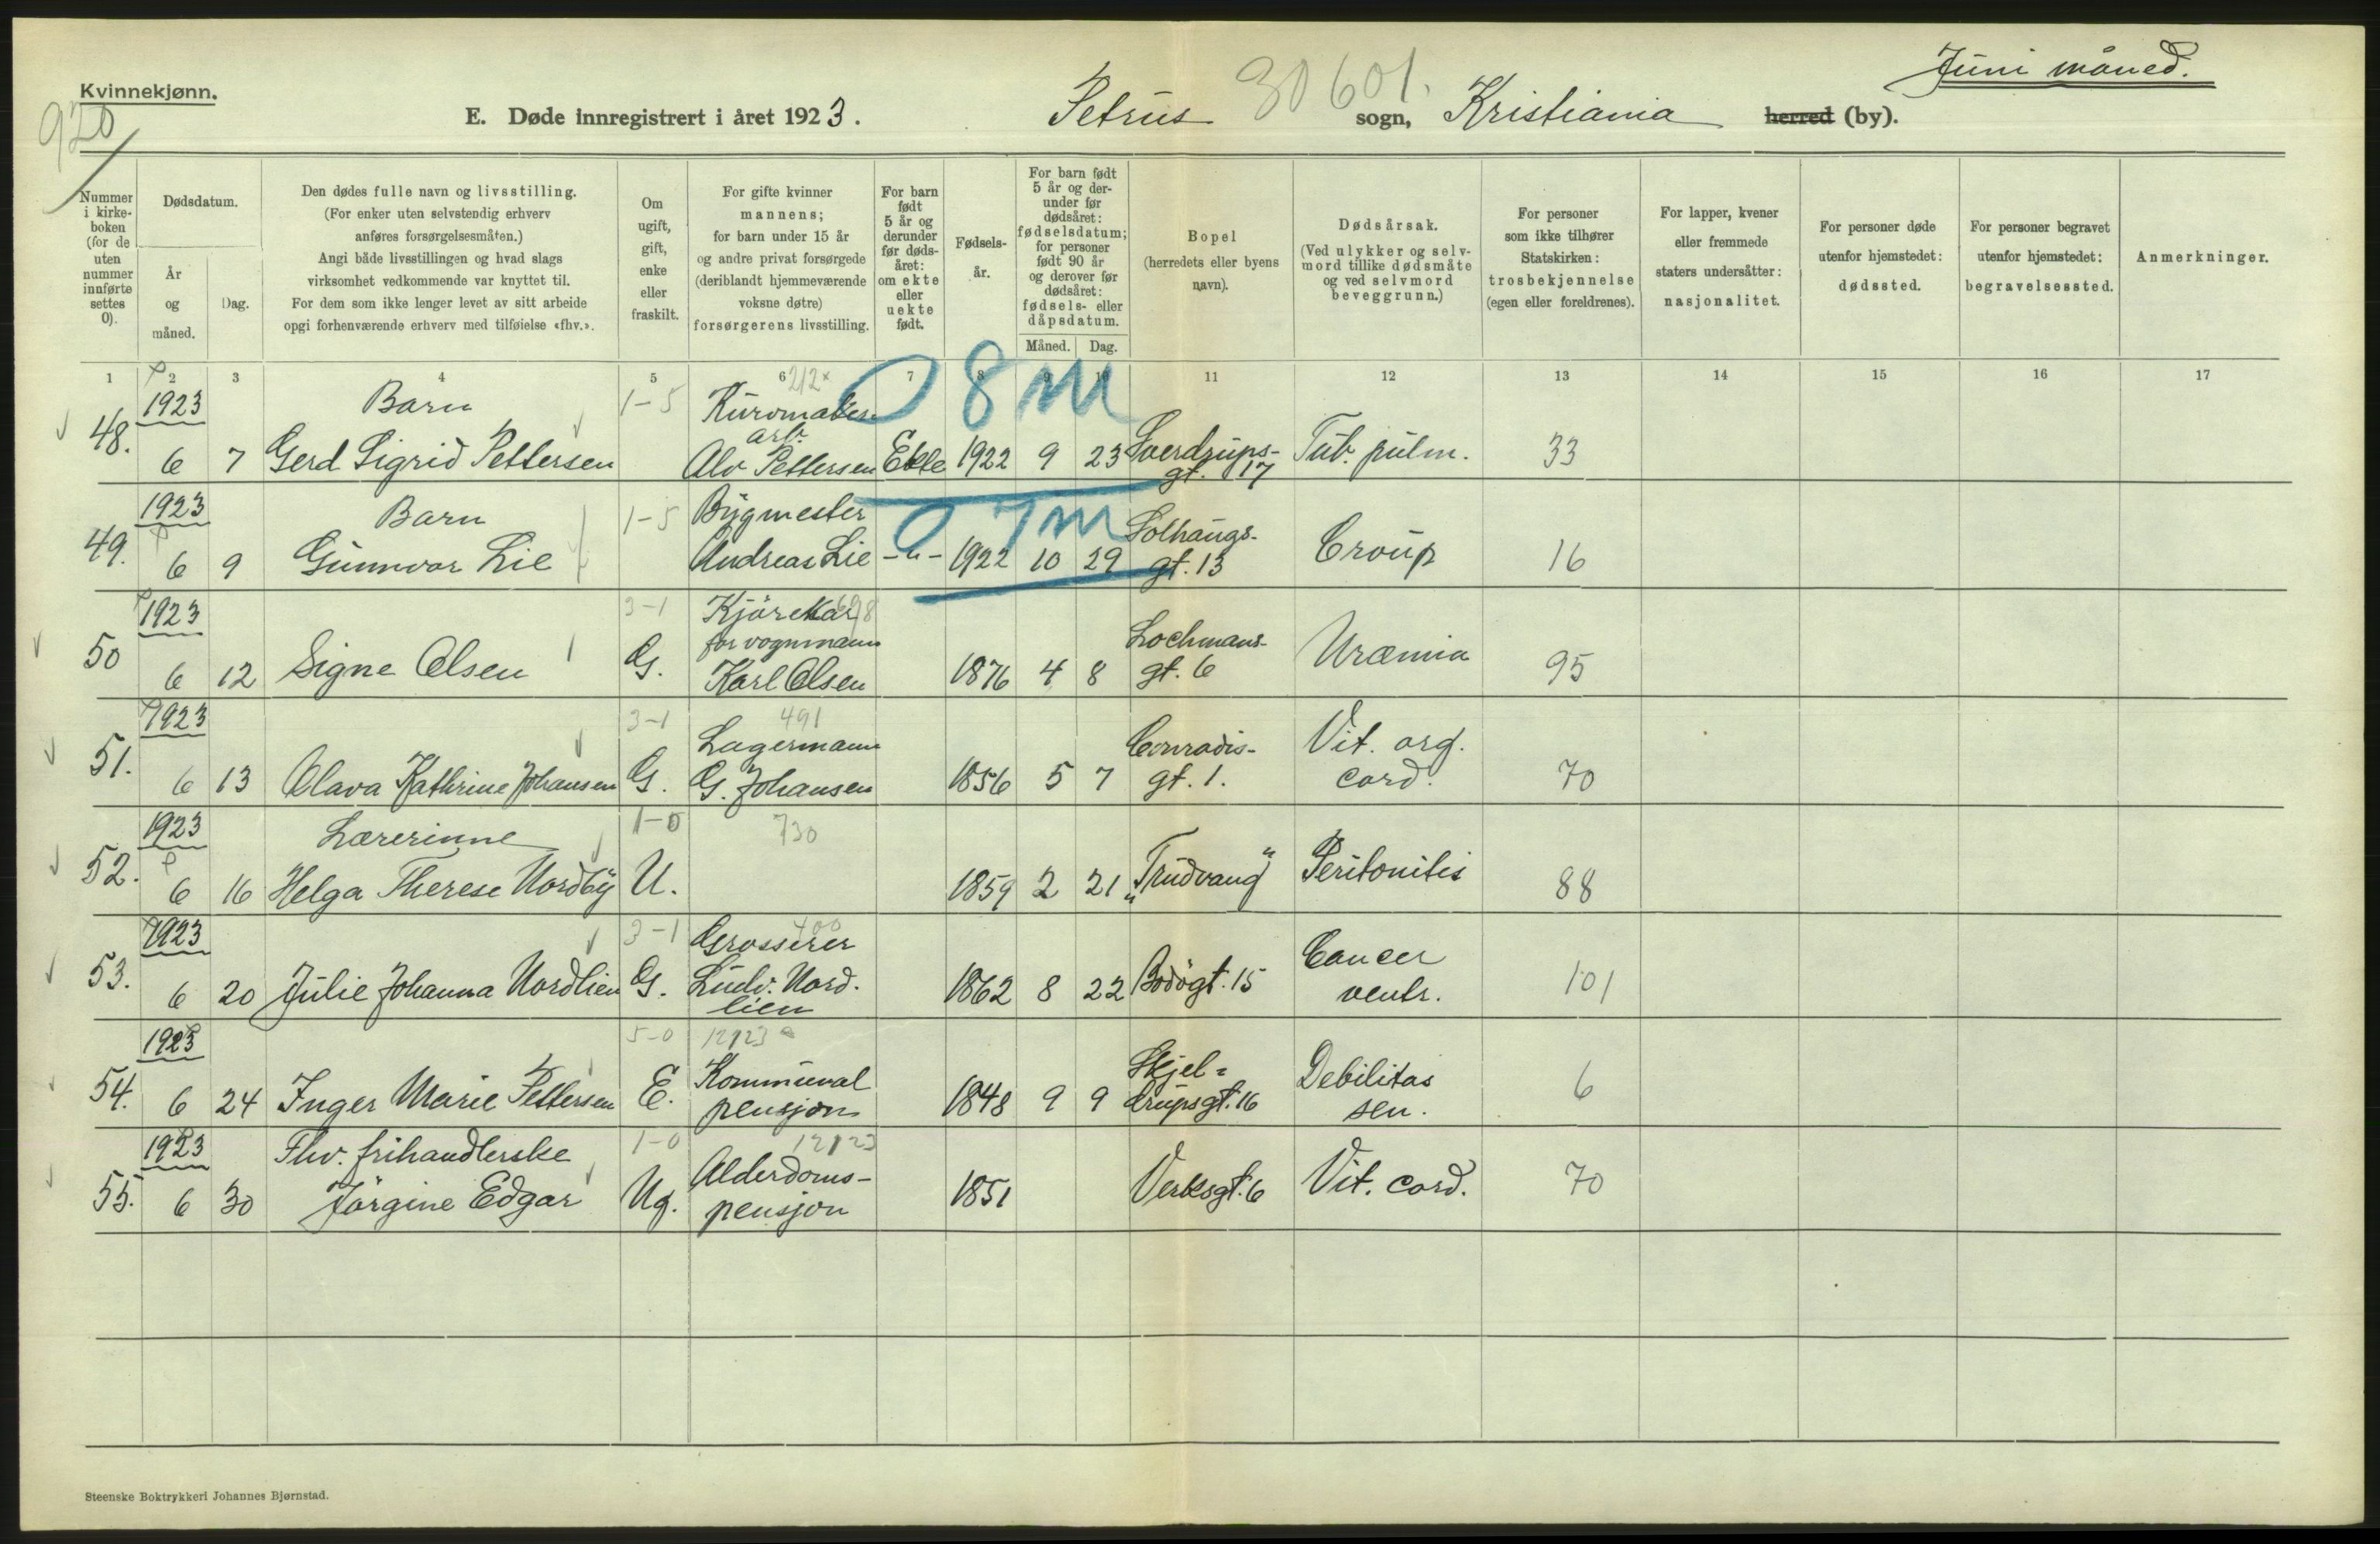 Juni måned.
Kvinnekjønn.
920
30601.
E. Døde innregistrert i året 1923.
Petrus sogn, Kristiania herred (by).
Nummer i kirke- boken (for de uten nummer innførte settes 0).
Dødsdatum.
År og måned.
Dag.
Den dødes fulle navn og livsstilling.
(For enker uten selvstendig erhverv
anføres forsørgelsesmåten.)
Angi både livsstillingen og hvad slags
virksomhet vedkommende var knyttet til.
For dem som ikke lenger levet av sitt arbeide
opgi forhenværende erhverv med tilføielse «fhv.».
Om ugift, gift, enke eller fraskilt.
For gifte kvinner
mannens;
for barn under 15 år
og andre privat forsørgede
(deriblandt hjemmeværende
voksne døtre)
forsørgerens livsstilling.
For barn født 5 år og derunder før døds- året: om ekte eller uekte født.
Fødsels- år.
For barn født 5 år og der- under før dødsåret: fødselsdatum; for personer født 90 år og derover før dødsåret: fødsels- eller dåpsdatum.
Måned. Dag.
Bopel
(herredets eller byens
navn).
Dødsårsak.
(Ved ulykker og selv-
mord tillike dødsmåte
og ved selvmord
beveggrunn.)
For personer
som ikke tilhører
Statskirken:
trosbekjennelse
(egen eller foreldrenes).
For lapper, kvener
eller fremmede
staters undersåtter:
nasjonalitet.
For personer døde
utenfor hjemstedet:
dødssted.
For personer begravet
utenfor hjemstedet:
begravelsessted.
Anmerkninger.
1 2 3 4 5 6 7 8 9 10 11 12 13 14 15 16 17
212x
0 8 m
1923 Barn 1-5
48. 6 7 Gerd Sigrid Pettersen arb. Alv Pettersen Ekte 1922 9 23 Sverdrups- gt. 17 Tub. pulm. 33
1923 Barn 1-5 Bygmester 0 7 m
49. 6 9 Gunnvor Lie Andreas Lie -"- 1922 10 29 Solhaugs- gt. 13 Croup 16
1923 3-1 Kjørekar
50 6 12 Signe Olsen G. for vognmann Karl Olsen 1876 4 8 Lochmans- gt. 6 Uræmia 95
1923 3-1 491
51. 6 13 Olava Kathrine Johansen G. Lagermann G. Johansen 1856 5 7 Conradis- gt. 1. Vit. org. cord. 70
1923 Lærerinne 1-0 730
52. 6 16 Helga Therese Nordby U. 1859 2 21 "Trudvang" Peritonitis 88
1923 3-1 400
53. 6 20 Julie Johanna Nordlien G. Grosserer Ludv. Nord- lien 1862 8 22 Bodøgt. 15 Cancer ventr. 101
1923 5-0 12123
54. 6 24 Inger Marie Pettersen E. Kommunal pensjon 1848 9 9 Skjel= drupsgt. 16 Debilitas sen. 6
1923 Fhv. frihandlerske 1-0 12123
55. 6 30 Jörgine Edgar Ug. Alderdoms- pensjon 1851 Verksgt. 6 Vit. cord. 70
Steenske Boktrykkeri Johannes Bjørnstad.